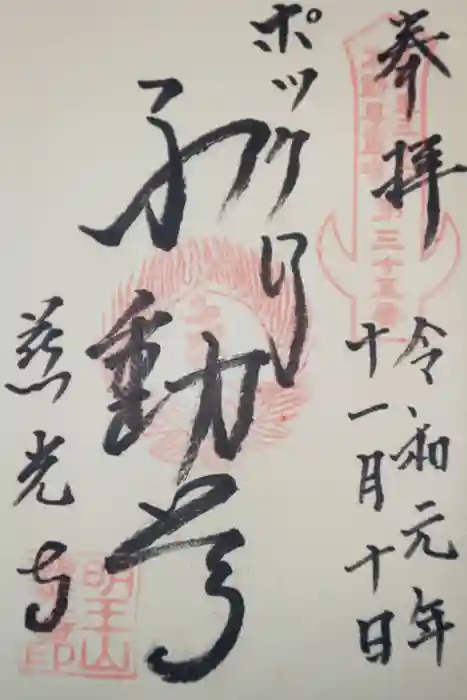 奉拝
令和元年
十一月十日
ポックリ
不動尊
慈光寺
第三十五番
明王山
印